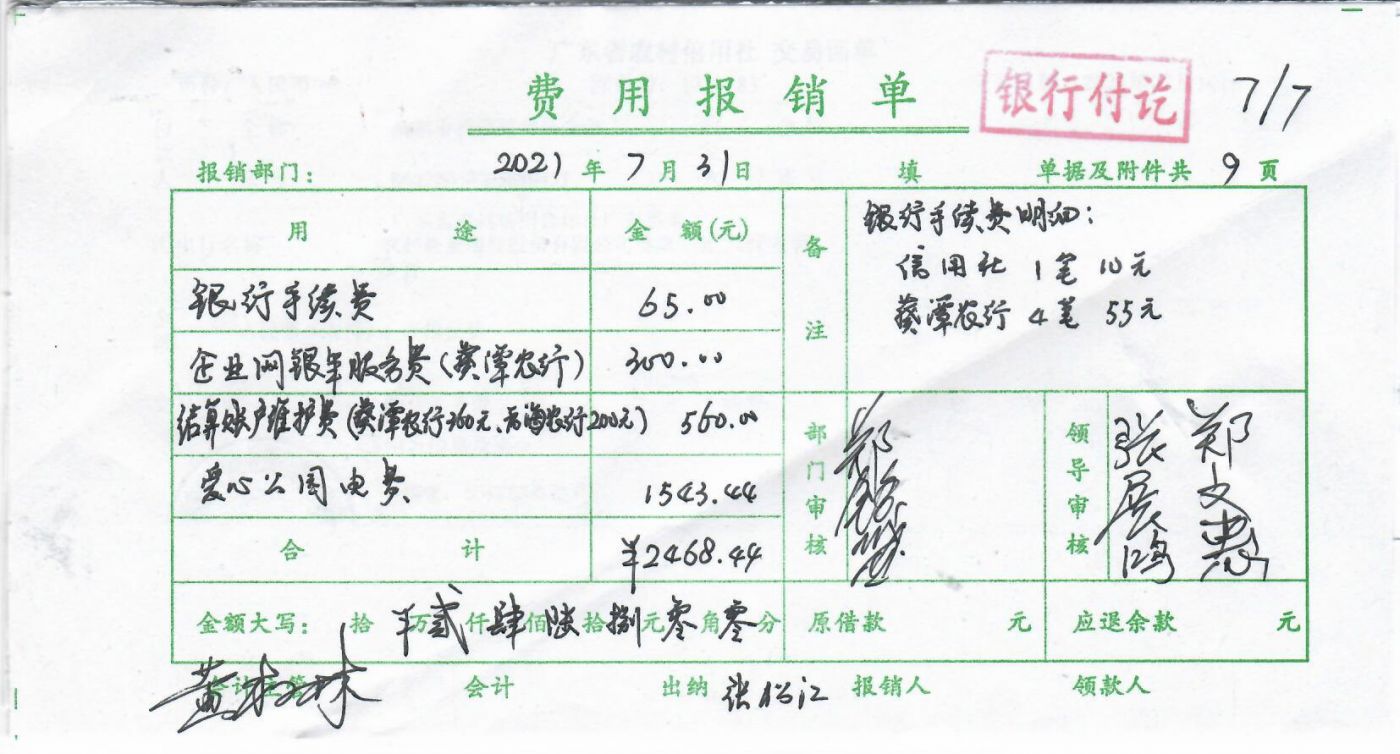 费用报销单 银行付讫 7/7
报销部门: 2021年7月31日 填 单据及附件共9页
用途 金额(元) 备注 银行手续费明细:
信用社 1笔 10元
葵潭农行 4笔 55元
银行手续费 65.00
企业网银年服务费(葵潭农行) 300.00
结算账户维护费(葵潭农行360元、农行200元) 560.00
爱心公园电费 1543.44
合计 ¥2468.44
部门审核 郑 领导审核 张展鸿 郑文惠
金额大写: 拾 ¥万贰仟肆佰陆拾捌元零角零分 原借款 元 应退余款 元
会计主管 黄林林 会计 出纳 张松江 报销人 领款人